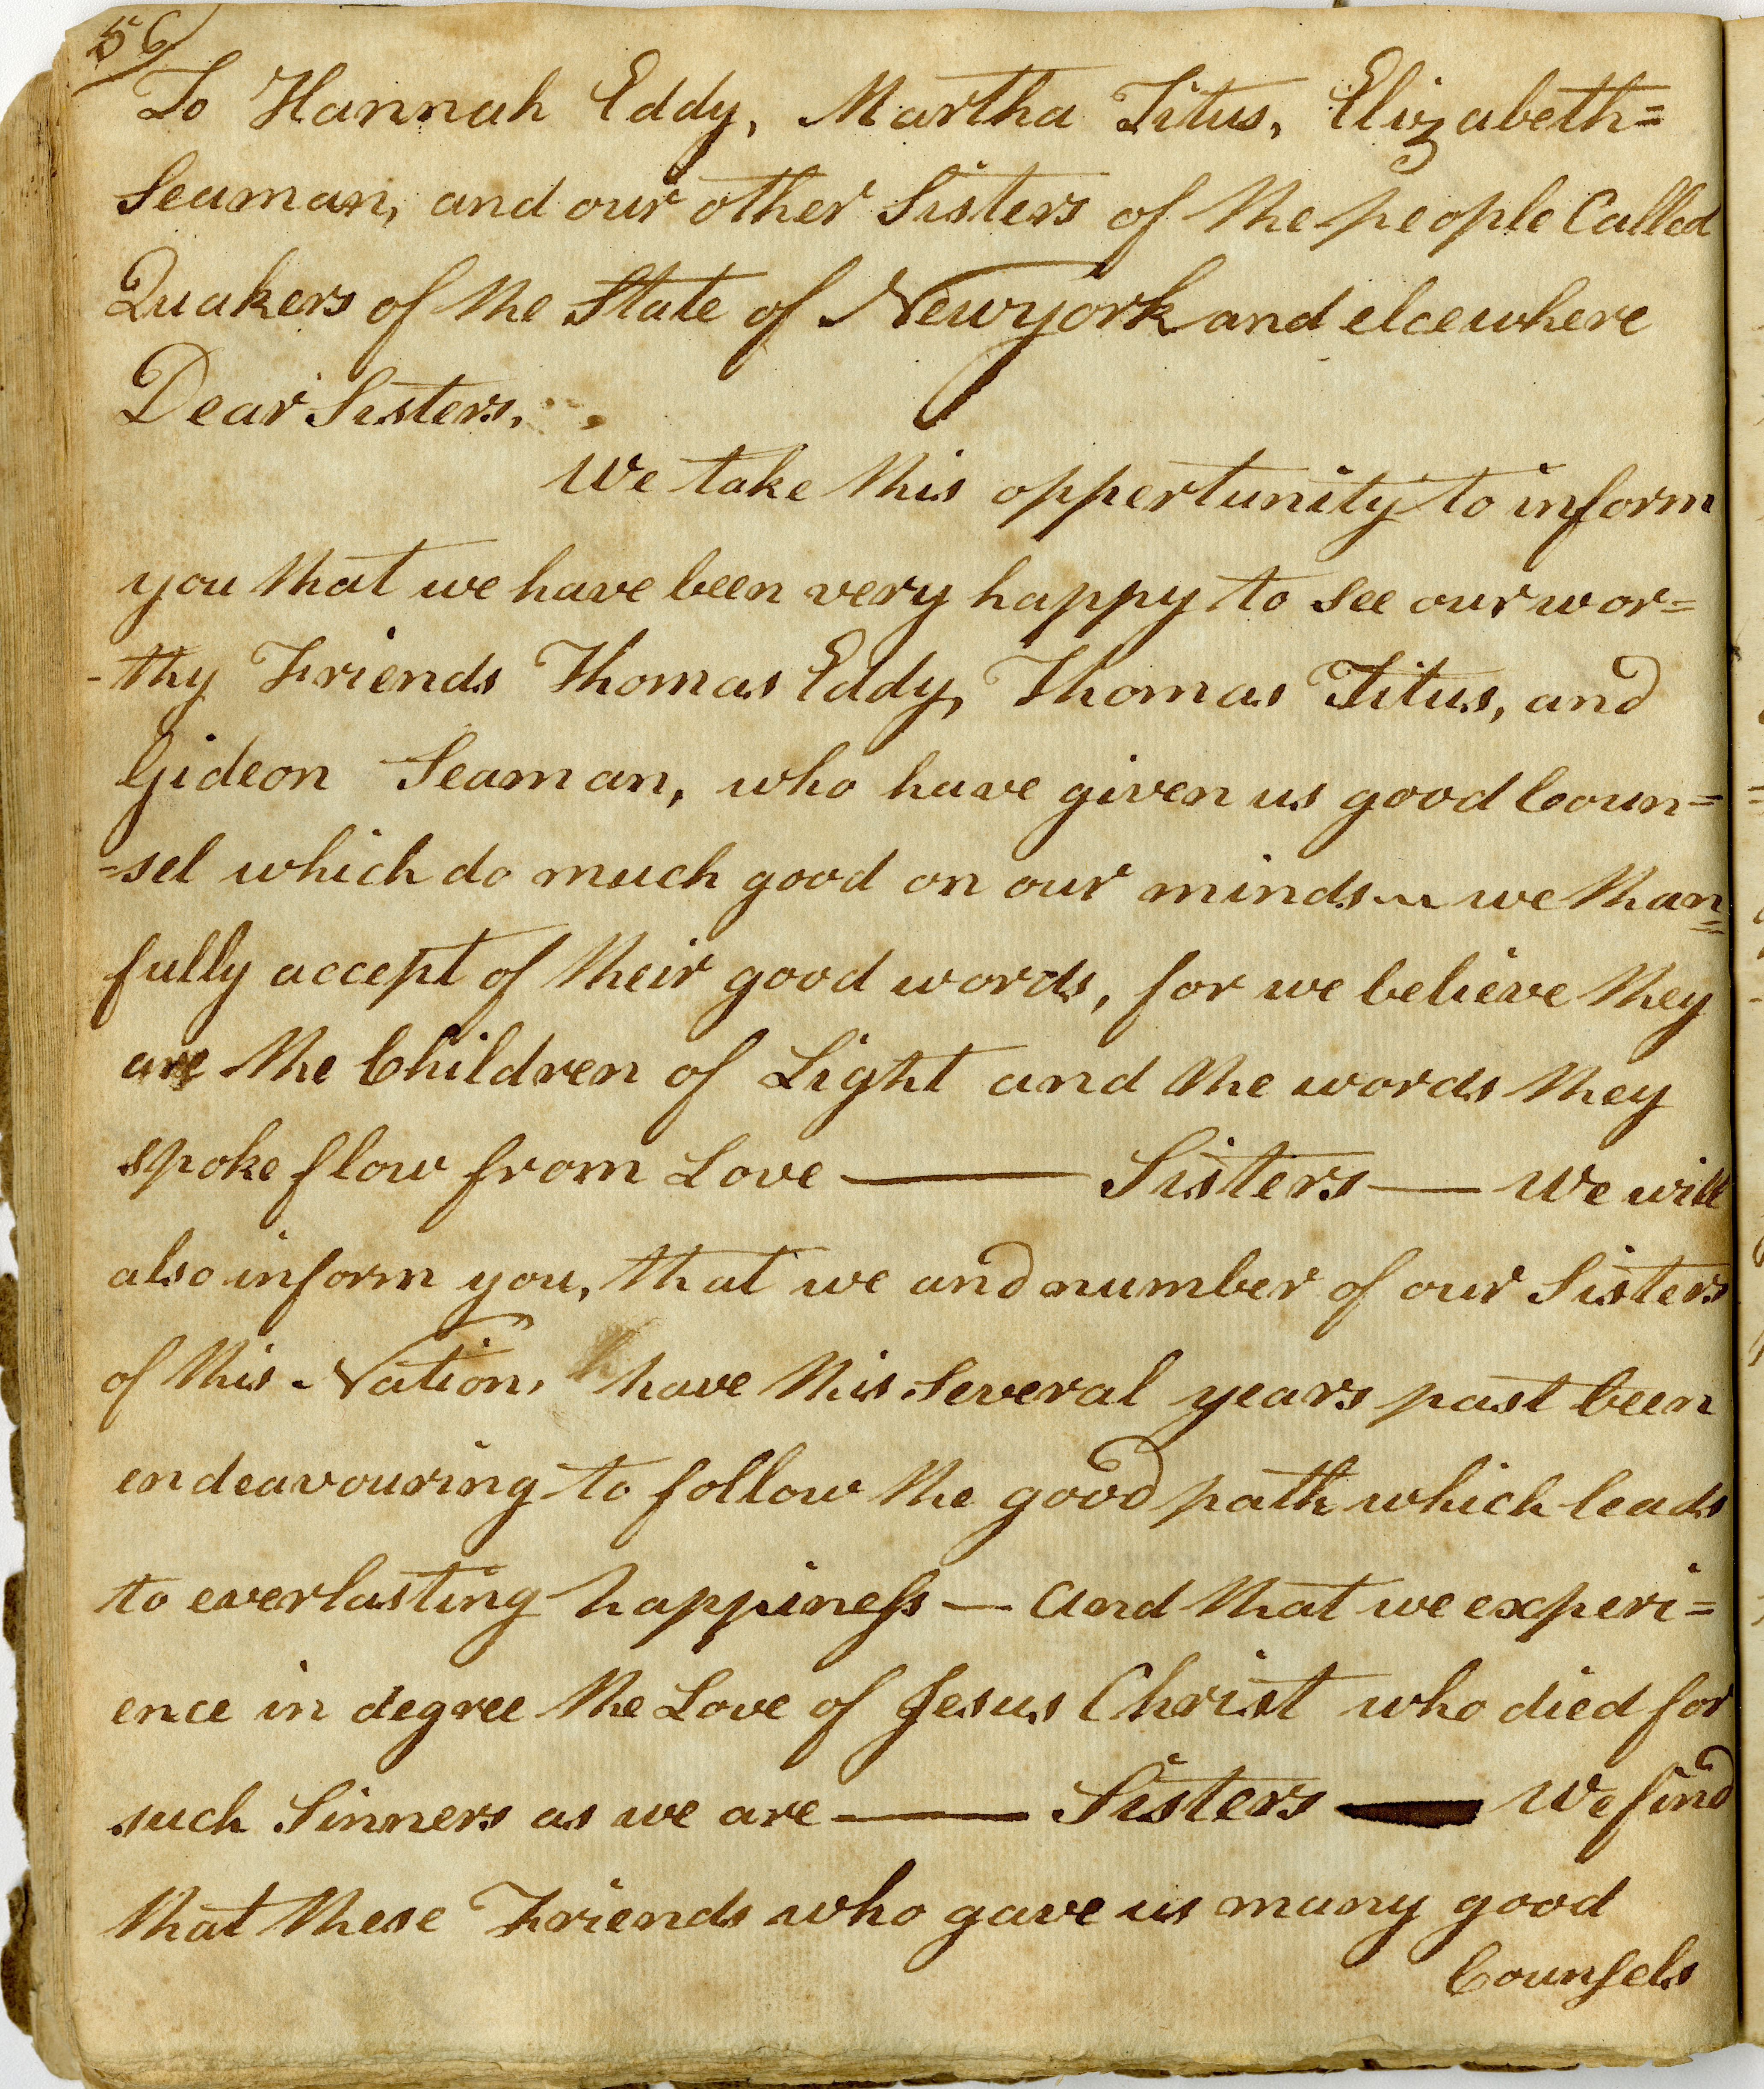 56
To Hannah Eddy, Martha Titus, Elizabeth=
Seaman, and our other Sisters of the people Called
Quakers of the State of Newyork and elcewhere
Dear Sisters,
We take this oppertunity to inform
you that we have been very happy to see our wor=
-thy Friends Thomas Eddy, Thomas Titus, and
Gideon Seaman, who have given us good Coun=
=sel which do much good on our minds ~ we than=
fully accept of their good words, for we believe they
are the Children of Light and the words they
spoke flow from Love — Sisters — We will
also inform you, that we and number of our Sisters
of this Nation, have this several years past been
endeavouring to follow the good path which leads
to everlasting happiness — And that we experi=
ence in degree the Love of Jesus Christ who died for
such Sinners as we are — Sisters — We find
that these Friends who gave us many good
Counsels